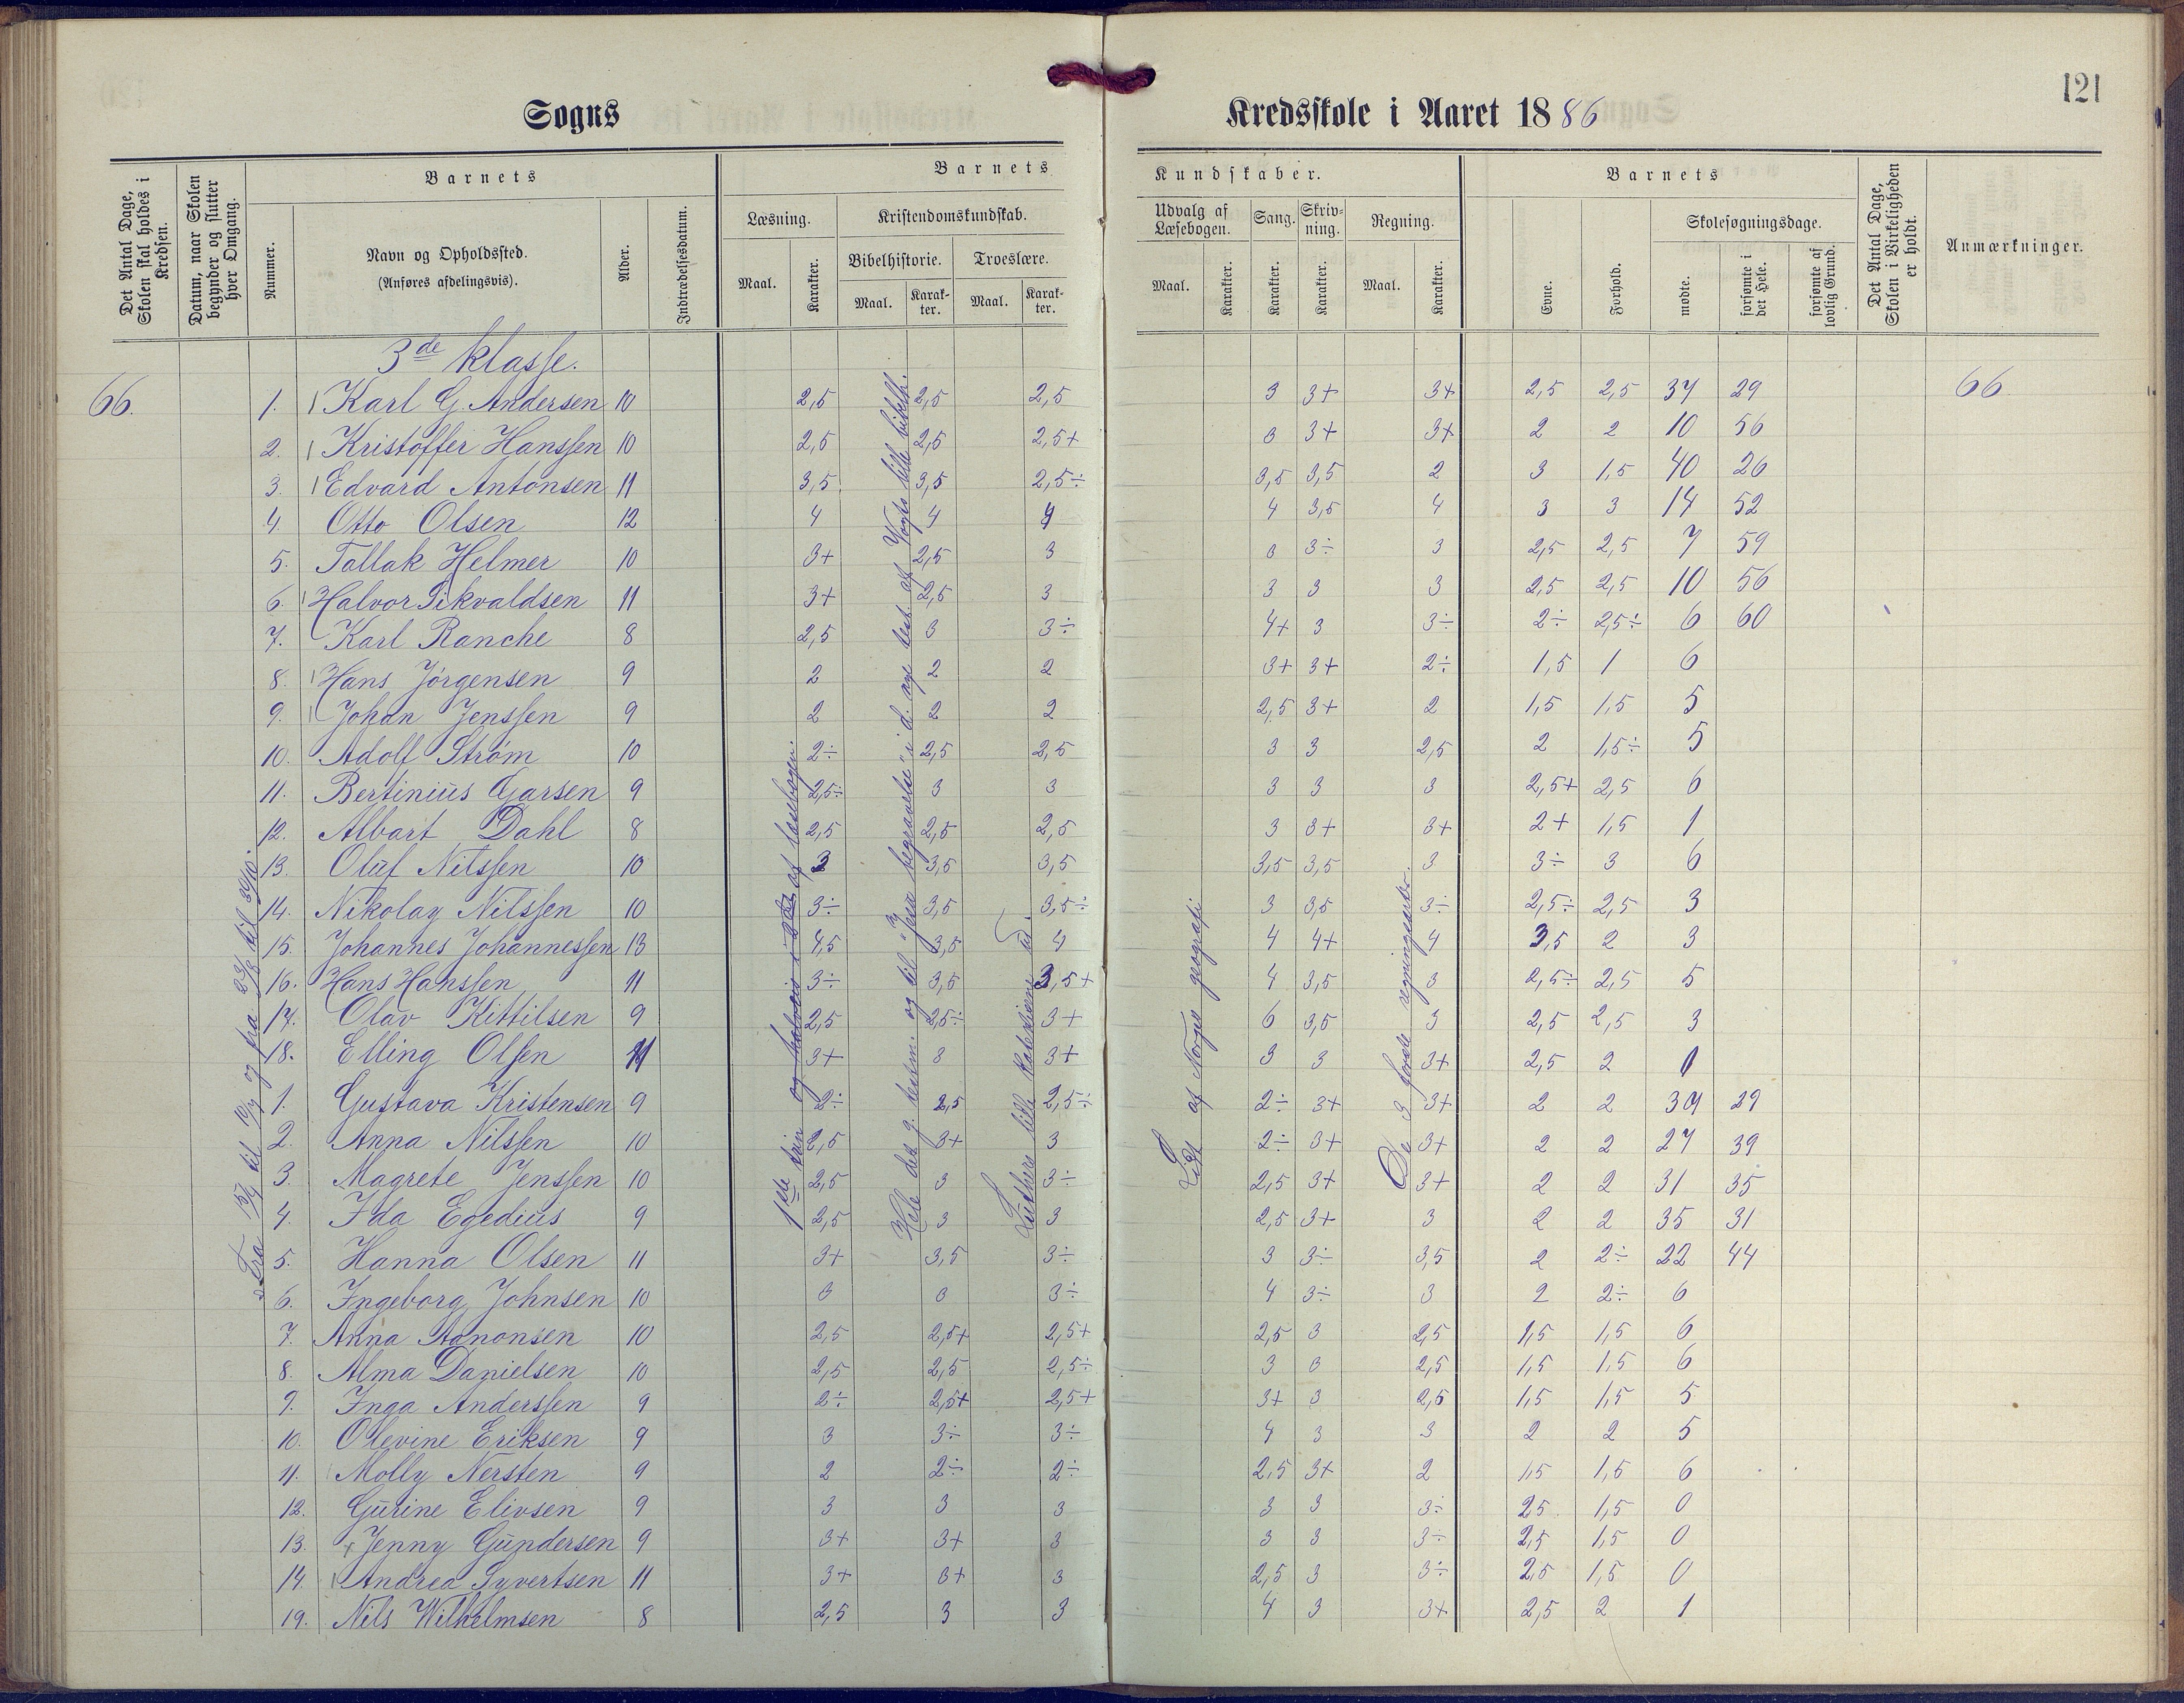 121
Sogns Kredsskole i Aaret 1886
Det Antal Dage, Skolen skal holdes i Kredsen.
Datum, naar Skolen begynder og slutter hver Omgang.
Barnets
Nummer.
Navn og Opholdssted.
(Anføres afdelingsvis).
Alder.
Indtrædelsesdatum.
Barnets Kundskaber.
Læsning.
Maal.
Karakter.
Kristendomskundskab.
Bibelhistorie.
Maal.
Karakter.
Troeslære.
Maal.
Karakter.
Udvalg af Læsebogen.
Maal.
Karakter.
Sang.
Karakter.
Skrivning.
Karakter.
Regning.
Maal.
Karakter.
Barnets
Evne.
Forhold.
Skolesøgningsdage.
mødte.
forsømte i det Hele.
forsømte af lovlig Grund.
Det Antal Dage, Skolen i Virkeligheden er holdt.
Anmærkninger.
3de klasse.
66. 1. Karl G. Andersen 10 2,5 2,5 2,5 3 3+ 3+ 2,5 2,5 37 29 66
2. Kristoffer Hanssen 10 2,5 2,5 2,5+ 3 3+ 3+ 2 2 10 56
3. Edvard Antonsen 11 3,5 3,5 2,5÷ 3,5 3,5 2 3 1,5 40 26
4. Otto Olsen 12 4 4 4 4 3,5 4 3 3 14 52
5. Tallak Helmer 10 3+ 2,5 3 3 3÷ 3 2,5 2,5 7 59
6. Halvor Sikvaldsen 11 3+ 2,5 3 3 3 3 2,5 2,5 10 56
7. Karl Ranche 8 2,5 3 3÷ 4+ 3 3÷ 2÷ 2,5÷ 6 60
8. Hans Jörgensen 9 2 2 2 3+ 3+ 2÷ 1,5 1 6
9. Johan Jenssen 9 2 2 2 2,5 3+ 2 1,5 1,5 5
10. Adolf Strøm 10 2÷ 2,5 2,5 3 3 2,5 2 1,5÷ 5
11. Bertinius Garsen 9 2,5÷ 3 3 3 3 3 2,5+ 2,5 6
12. Albart Dahl 8 2,5 2,5 2,5 3 3+ 3+ 2+ 1,5 1
13. Oluf Nilssen 10 3 3,5 3,5 3,5 3,5 3 3÷ 3 6
14. Nikolay Nilssen 10 3÷ 3,5 3,5÷ 3 3,5 3÷ 2,5÷ 2,5 3
15. Johannes Johannessen 13 4,5 3,5 4 4 4+ 4 3,5 2 3
16. Hans Hanssen 11 3÷ 3,5 3,5+ 4 3,5 3 2,5÷ 2,5 5
17. Olav Kittilsen 9 2,5 2,5÷ 3+ 6 3,5 3 2,5 2,5 3
18. Elling Olsen 11 3+ 3 3+ 3 3 3+ 2,5 2
1. Gustava Kristensen 9 2÷ 2,5 2,5÷ 2÷ 3+ 3+ 2 2 37 29
2. Anna Nilssen 10 2,5 3+ 3 2÷ 3+ 3+ 2 2 27 39
3. Magrete Jenssen 10 2,5 3 3÷ 2,5 3+ 3+ 2 2 31 35
4. Ida Egedius 9 2,5 3 3 2,5 3+ 3 2 2 35 31
5. Hanna Olsen 11 3+ 3,5 3÷ 3 3÷ 3,5 2 2÷ 22 44
6. Ingeborg Johnsen 10 3 3 3÷ 4 3÷ 3 2 2÷ 6
7. Anna Aanonsen 10 2,5 2,5+ 2,5+ 2,5 3 2,5 1,5 1,5 6
8. Alma Danielsen 10 2,5 2,5 2,5÷ 3 3 2,5 1,5 1,5 6
9. Inga Anderssen 9 2÷ 2,5+ 2,5+ 3+ 3 2,5 1,5 1,5 5
10. Olevine Eriksen 9 3 3÷ 3÷ 4 3 3 2 2 5
11. Molly Nersten 9 2 2÷ 2÷ 2,5 3+ 2 1,5 1,5 6
12. Gurine Elivsen 9 3 3 3 3 3 3÷ 2,5 1,5 0
13. Jenny Gundersen 9 3+ 3+ 3 3 3 3÷ 2,5 1,5 0
14. Andrea Syvertsen 11 3+ 3+ 3 2,5 3 3÷ 2,5 1,5 0
19. Nils Wilhelmsen 8 2,5 3 3 4 3 3+ 2,5 2 1
Fra 15/4 til 10/7 og fra 23/8 til 30/10.
1ste trin og halvveis i af læsebogen.
Hele det g. testm. og til "Jesu begravelse" i d. nye test. af Vogts lille bibelh.
Luthers lille katekisme ud.
Lidt af Norges geografi
De 3 første regningsarter.